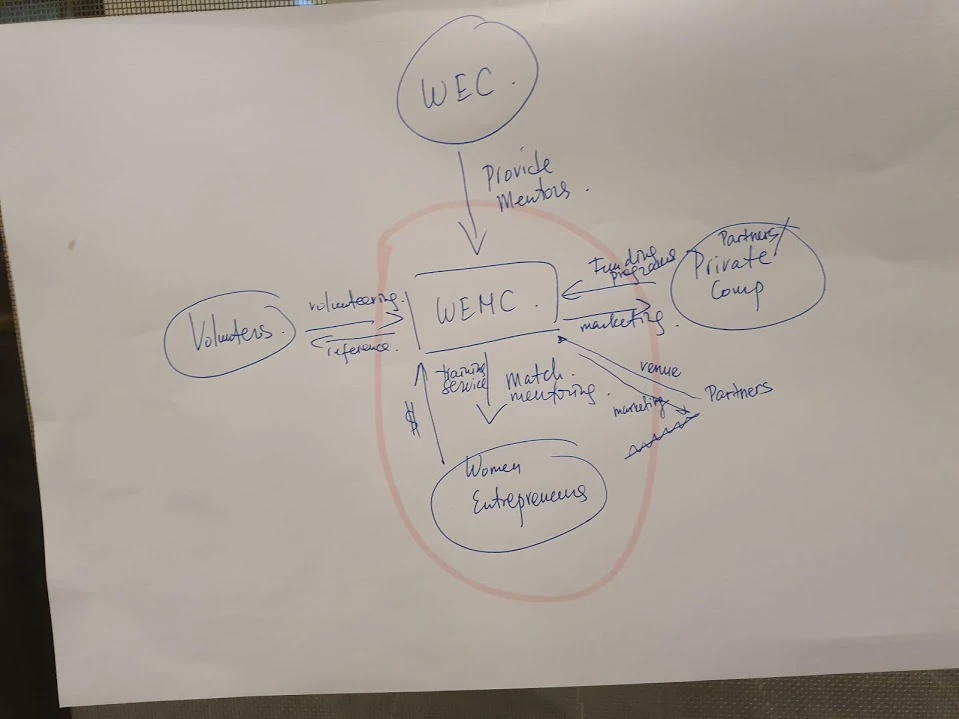 WEC.
Provide
Mentors.
Partners/
Private
Comp
Funding
programs
marketing.
WEMC.
volunteering.
Volunters.
reference.
training
service
Match.
mentoring.
$
venue
marketing
Partners
Women
Entrepreneurs